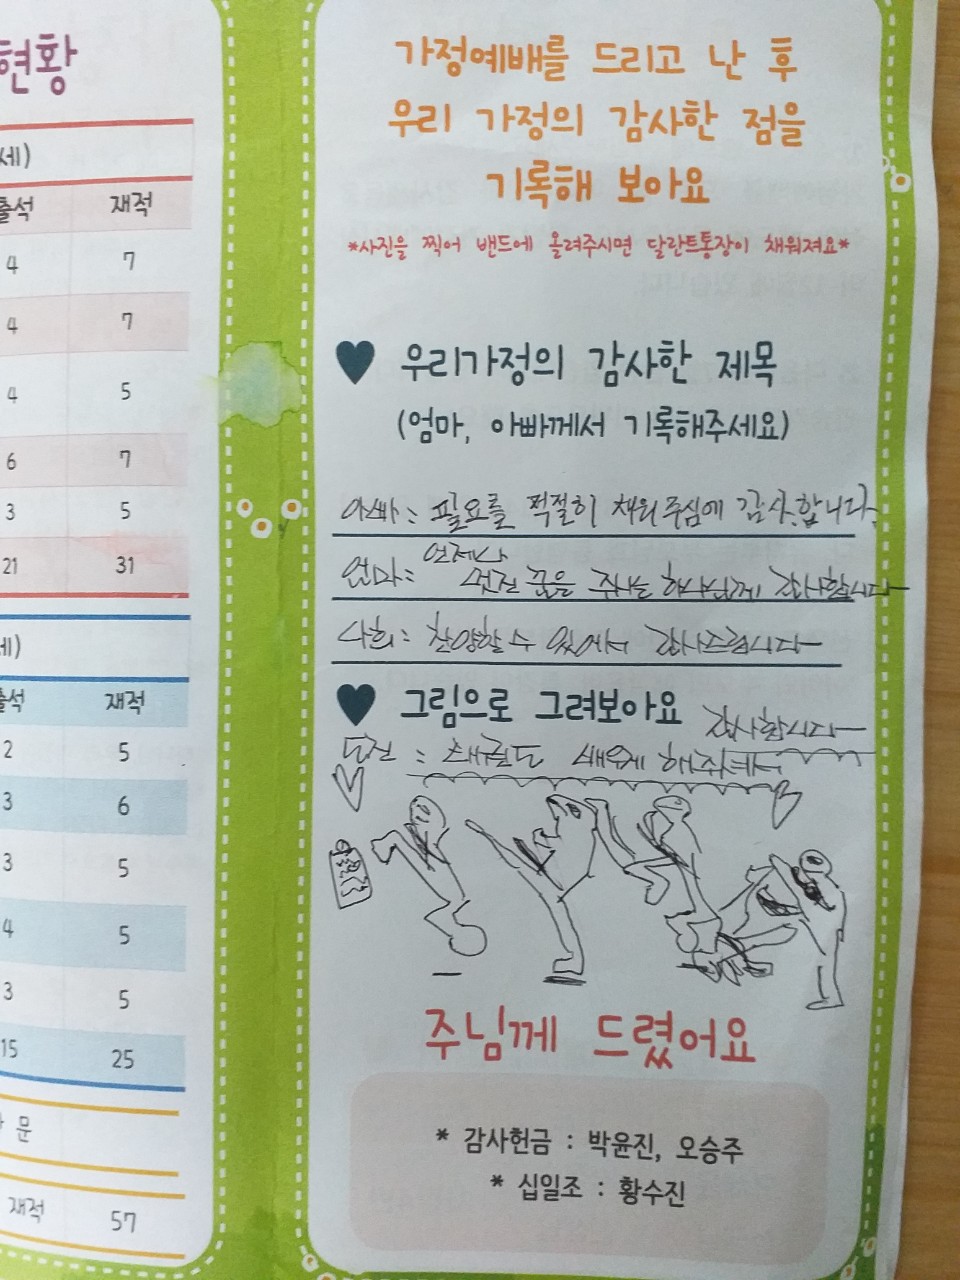 현황
세)
출석 재적
4 7
4 7
4 5
6 7
3 5
21 31
세)
출석 재적
2 5
3 6
3 5
4 5
3 5
15 25
문
재적
57
가정예배를 드리고 난 후
우리 가정의 감사한 점을
기록해 보아요
*사진을 찍어 밴드에 올려주시면 달란트통장이 채워져요*
♥ 우리가정의 감사한 제목
(엄마, 아빠께서 기록해주세요)
아빠 : 필요를 적절히 채워주심에 감사합니다.
언제나
엄마 : 멋진 꿈을 주시는 하나님께 감사합니다
찬양할 수 있에서 감사드립니다
♥ 그림으로 그려보아요
감사합니다
: 태권도 배우게 해주셔서
주님께 드렸어요
* 감사헌금 : 박윤진, 오승주
* 십일조 : 황수진